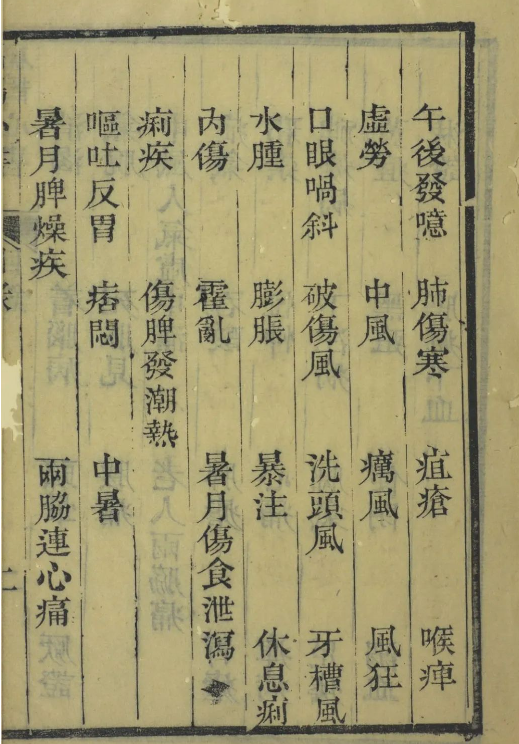 午後發噫 肺傷寒 疽瘡 喉痺
虛勞 中風 癘風 風狂
口眼喎斜 破傷風 洗頭風 牙槽風
水腫 膨脹 暴注 休息痢
內傷 霍亂 暑月傷食泄瀉
痢疾 傷脾發潮熱
嘔吐反胃 痞悶 中暑
暑月脾燥疾 兩脇連心痛
二